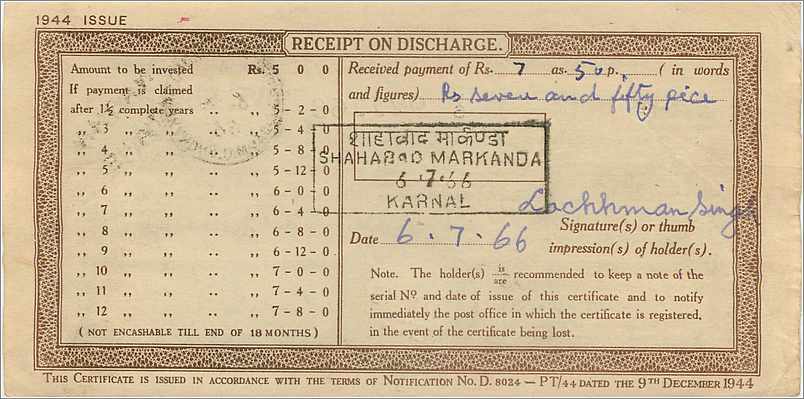 1944 ISSUE
RECEIPT ON DISCHARGE.
Amount to be invested Rs. 5 0 0
If payment is claimed
after 1½ complete years .. ,, 5 - 2 - 0
,, 3 ,, ,, .. ,, 5 - 4 - 0
,, 4 ,, ,, .. ,, 5 - 8 - 0
,, 5 ,, ,, .. ,, 5 - 12 - 0
,, 6 ,, ,, .. ,, 6 - 0 - 0
,, 7 ,, ,, .. ,, 6 - 4 - 0
,, 8 ,, ,, .. ,, 6 - 8 - 0
,, 9 ,, ,, .. ,, 6 - 12 - 0
,, 10 ,, ,, .. ,, 7 - 0 - 0
,, 11 ,, ,, .. ,, 7 - 4 - 0
,, 12 ,, ,, .. ,, 7 - 8 - 0
( NOT ENCASHABLE TILL END OF 18 MONTHS )
Received payment of Rs. 7 as. 50 p. ( in words
and figures) Rs seven and fifty pice
शाहाबाद मार्कण्डा
SHAHABAD MARKANDA
6.7.66
KARNAL
Lachhman Singh
Signature(s) or thumb
Date 6.7.66 impression(s) of holder(s).
Note. The holder(s) is/are recommended to keep a note of the
serial No and date of issue of this certificate and to notify
immediately the post office in which the certificate is registered,
in the event of the certificate being lost.
THIS CERTIFICATE IS ISSUED IN ACCORDANCE WITH THE TERMS OF NOTIFICATION NO. D. 8024 — PT/44 DATED THE 9TH DECEMBER 1944